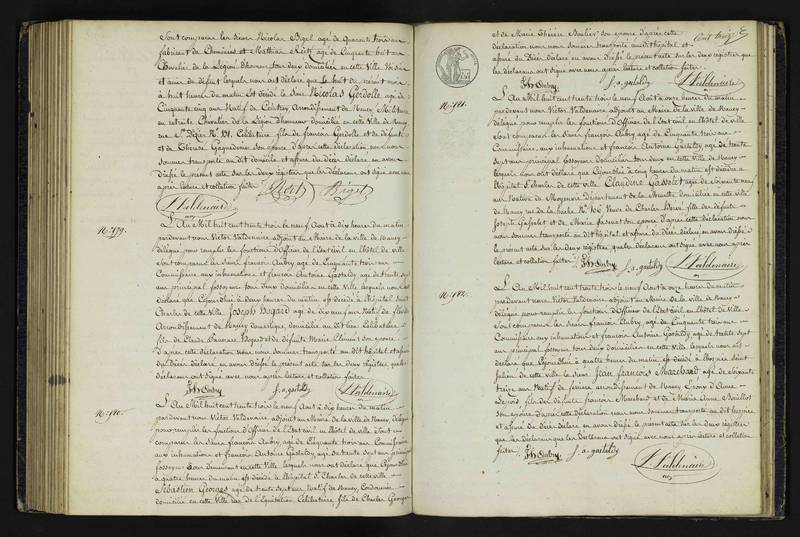 Sont comparus les sieurs Nicolas Bigel agé de Quarante trois ans
fabricant de Cheminées et Mathieu agé de Cinquante huit ans
Chevalier de la Légion d'honneur tous deux domiciliés en cette Ville Voisins
et amis du défunt lesquels nous ont déclaré que le huit du présent mois
à huit heures du matin est décédé le Sieur Nicolas Gérdolle agé de
Cinquante cinq ans Natif de Arrondissement de Nancy Militaire
en retraite Chevalier de la Légion d'honneur domicilié en cette Ville de Nancy
rue St Dizier No 131, Célibataire, fils de françois Gérdolle et de défunte
et de Thérese son épouse d'après cette déclaration nous nous
sommes transporté au dit domicile et assuré du décès déclaré en avons
Dressé le présent acte sur les deux registres que les déclarants ont signé avec nous
après lecture et collation faites
Bigel
V. Valdenaire
No. 479.
L'An Mil huit cent trente trois le neuf Aout à dix heures du matin
pardevant nous Victor Valdenaire adjoint au Maire de la ville de Nancy
délégué pour remplir les fonctions d'Officier de l'Etat civil en l'hôtel de ville
sont comparus les Sieurs françois Aubry agé de Cinquante trois ans
Commissaire aux inhumations et françois Antoine Gastaldy agé de trente sept
ans principal fossoyeur tous deux domiciliés en cette Ville, lesquels nous ont
déclaré que Cejourd'hui à deux heures du matin est décédé à l'hopital Saint
Charles de cette Ville Joseph Bogard agé de dix neuf ans Natif de
Arrondissement de Nancy domestique, domicilié au dit lieu Célibataire
fils de Claude Laurence Bogard et de défunte Marie Clément son épouse
D'après cette déclaration nous nous sommes transporté au dit hôpital et assuré
du Décès déclaré, en avons dressé le présent acte sur les deux registres, que les
déclarants ont signé avec nous après lecture et collation faites
Fs Aubry f. a. gastaldy V. Valdenaire
No. 480.
L'An Mil huit cent trente trois le neuf Aout à dix heures du matin
pardevant nous Victor Valdenaire, adjoint au Maire de la ville de Nancy, délégué
pour remplir les fonctions d'Officier de l'Etat Civil en l'hôtel de ville sont
comparus les Sieurs françois Aubry, agé de Cinquante trois ans Commissaire
aux inhumations, et françois Antoine Gastaldy agé de trente sept ans principal
fossoyeur tous deux demeurant en cette Ville, lesquels nous ont déclaré que Cejourd'hui
à quatre heures du matin est décédé à l'hopital St Charles de cette ville
Sébastien Georges agé de trente sept ans Natif de Nancy, Cordonnier
domicilié en cette Ville rue de l'Equitation, Célibataire, fils de Charles Georges
et de Marie Thérèse son épouse d'après cette
déclaration nous nous sommes transporté au dit hôpital et
assuré du Décès déclaré, en avons dressé le présent acte sur les deux registres que
les déclarants ont signé avec nous après lecture et collation faites
Fs Aubry f. a. gastaldy V. Valdenaire
No. 481.
L'An Mil huit cent trente trois le neuf Aout à onze heures du matin
pardevant nous Victor Valdenaire adjoint au Maire de la ville de Nancy
délégué pour remplir les fonctions d'Officier de l'Etat civil en l'hôtel de ville
sont comparus les Sieurs françois Aubry agé de Cinquante trois ans
Commissaire, aux inhumations et françois Antoine Gastaldy agé de trente
sept ans principal fossoyeur domiciliés tous deux en cette ville de Nancy
lesquels nous ont déclaré que Cejourd'hui à cinq heures du matin est décédée à
l'hopital St Charles de cette ville Claudine Gasselet agée de soixante neuf
ans Native de Moyenvic Département de la Meurthe domiciliée en cette ville
de Nancy rue de la hache No 106 Veuve de Charles fille des défunts
Joseph Gasselet et de Marie son épouse d'après cette déclaration nous
nous sommes transporté au dit hopital et assuré du Décès déclaré, en avons dressé
le présent acte sur les deux registres, que les déclarants ont signé avec nous après
lecture et collation faites
Fs Aubry f. a. gastaldy V. Valdenaire
No. 482.
L'An Mil huit cent trente trois le neuf Aout à onze heures du matin
pardevant nous Victor Valdenaire adjoint au Maire de la ville de Nancy
délégué pour remplir les fonctions d'Officier de l'Etat civil en l'hôtel de Ville
sont comparus les Sieurs françois Aubry, agé de Cinquante trois ans
Commissaire aux inhumations et françois Antoine Gastaldy, agé de trente sept
ans principal fossoyeur tous deux domiciliés en cette Ville lesquels nous ont
déclaré que Cejourd'hui à quatre heures du matin est décédé à l'hospice saint
Julien de cette ville le Sieur Jean françois Marchard agé de soixante
treize ans Natif de arrondissement de Nancy Epoux d'Anne
fils des défunts françois Marchard et de Marie Anne
son épouse d'après cette déclaration nous nous sommes transporté au dit hospice
et assuré du décès déclaré en avons dressé le présent acte sur les deux registres
que les déclarants ont signé avec nous après lecture et collation
faites
Fs Aubry f. a. gastaldy
V. Valdenaire